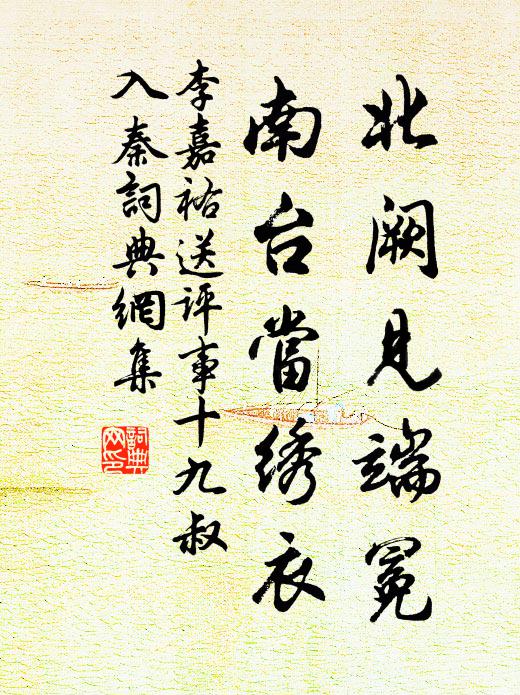 北阙見端冕
南台當绣衣
李嘉祐送评事十九叔
入秦詞典網集
詞典
网印